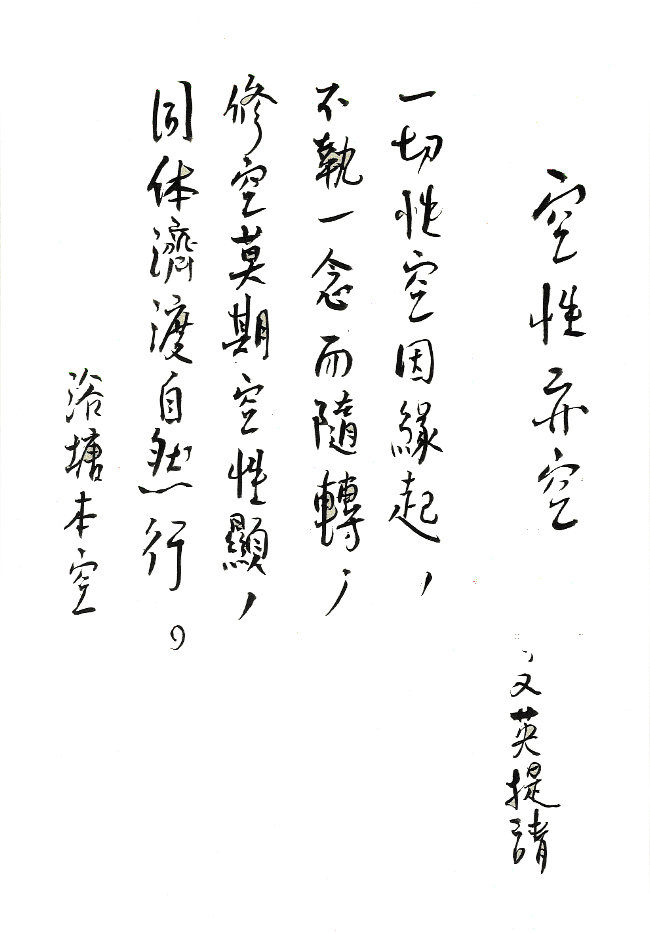 空性弃空
文英提請
一切性空因緣起，
不執一念而隨轉，
修空莫期空性顯，
同体濟渡自然行。
浴塘本空